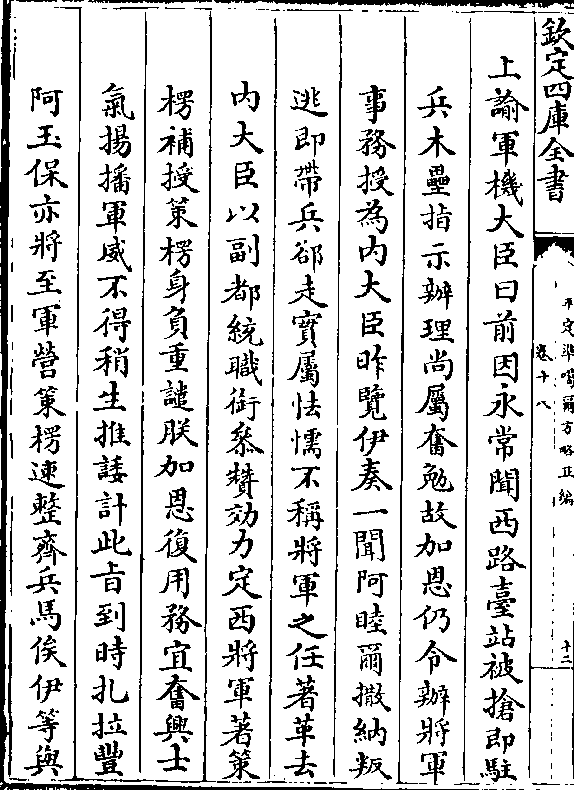 欽定四庫全書
平定準噶爾方略正編
卷十八
十三
上諭軍機大臣曰前因永常聞西路臺站被搶即駐
兵木壘指示辦理尚屬奮勉故加恩仍令辦將軍
事務授為内大臣昨覽伊奏一聞阿睦爾撒納叛
逃即帶兵郤走實屬怯懦不稱將軍之任著革去
内大臣以副都統職銜叅贊効力定西將軍著策
楞補授策楞身負重譴朕加恩復用務宜奮興士
氣揚播軍威不得稍生推諉計此㫖到時扎拉豐
阿玉保亦將至軍營策楞速整齊兵馬俟伊等與